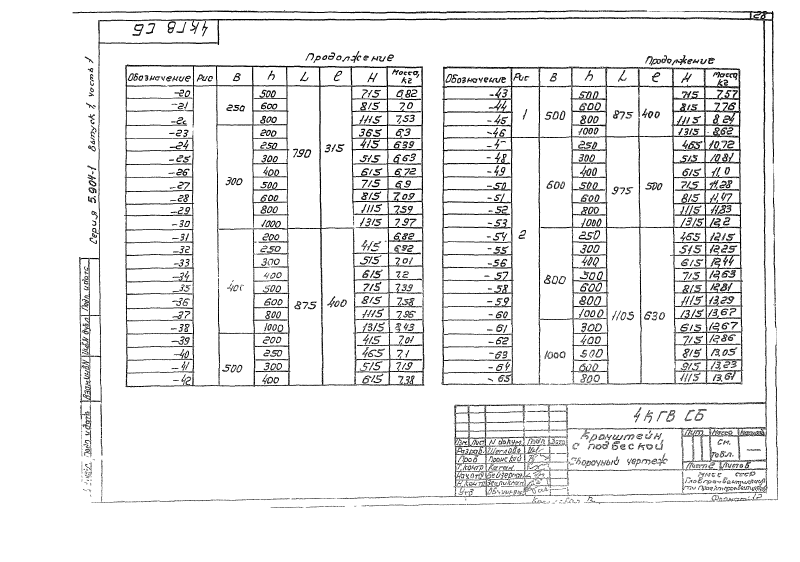 28
4КГВ СБ
Серия 5.904-1 Выпуск 1 часть 1
Продолжение
Обозначение Рис В h L l H Масса, кг
-20 250 500 790 315 715 6,82
-21 600 815 7,0
-22 800 1115 7,53
-23 300 200 365 6,3
-24 250 415 6,39
-25 300 515 6,63
-26 400 615 6,72
-27 500 715 6,9
-28 600 815 7,09
-29 800 1115 7,59
-30 1000 1315 7,97
-31 400 200 875 400 415 6,82
-32 250 6,92
-33 300 515 7,01
-34 400 615 7,2
-35 500 715 7,39
-36 600 815 7,58
-37 800 1115 7,96
-38 1000 1315 8,43
-39 500 200 415 7,01
-40 250 465 7,1
-41 300 515 7,19
-42 400 615 7,38
Продолжение
Обозначение Рис В h L l H Масса кг
-43 1 500 500 875 400 715 7,57
-44 600 815 7,76
-45 800 1115 8,24
-46 1000 1315 8,62
-47 2 600 250 975 500 465 10,72
-48 300 515 10,81
-49 400 615 11,0
-50 500 715 11,28
-51 600 815 11,47
-52 800 1115 11,83
-53 1000 1315 12,2
-54 800 250 1105 630 465 12,15
-55 300 515 12,25
-56 400 615 12,44
-57 500 715 12,63
-58 600 815 12,81
-59 800 1115 13,29
-60 1000 1315 13,67
-61 1000 300 615 12,67
-62 400 715 12,86
-63 500 815 13,05
-64 600 915 13,23
-65 800 1115 13,61
4КГВ СБ
Кронштейн
с подвеской
Сборочный чертеж
Лит Масса
см.
табл.
Лист 2 Листов
Изм Лист N докум. Подп. Дата
Разраб. Щеглова
Пров
Т.контр Каган
Н.контр
Утв
Формат 12
Подп и дата
Инв N дубл
Взам инв N
Подп и дата